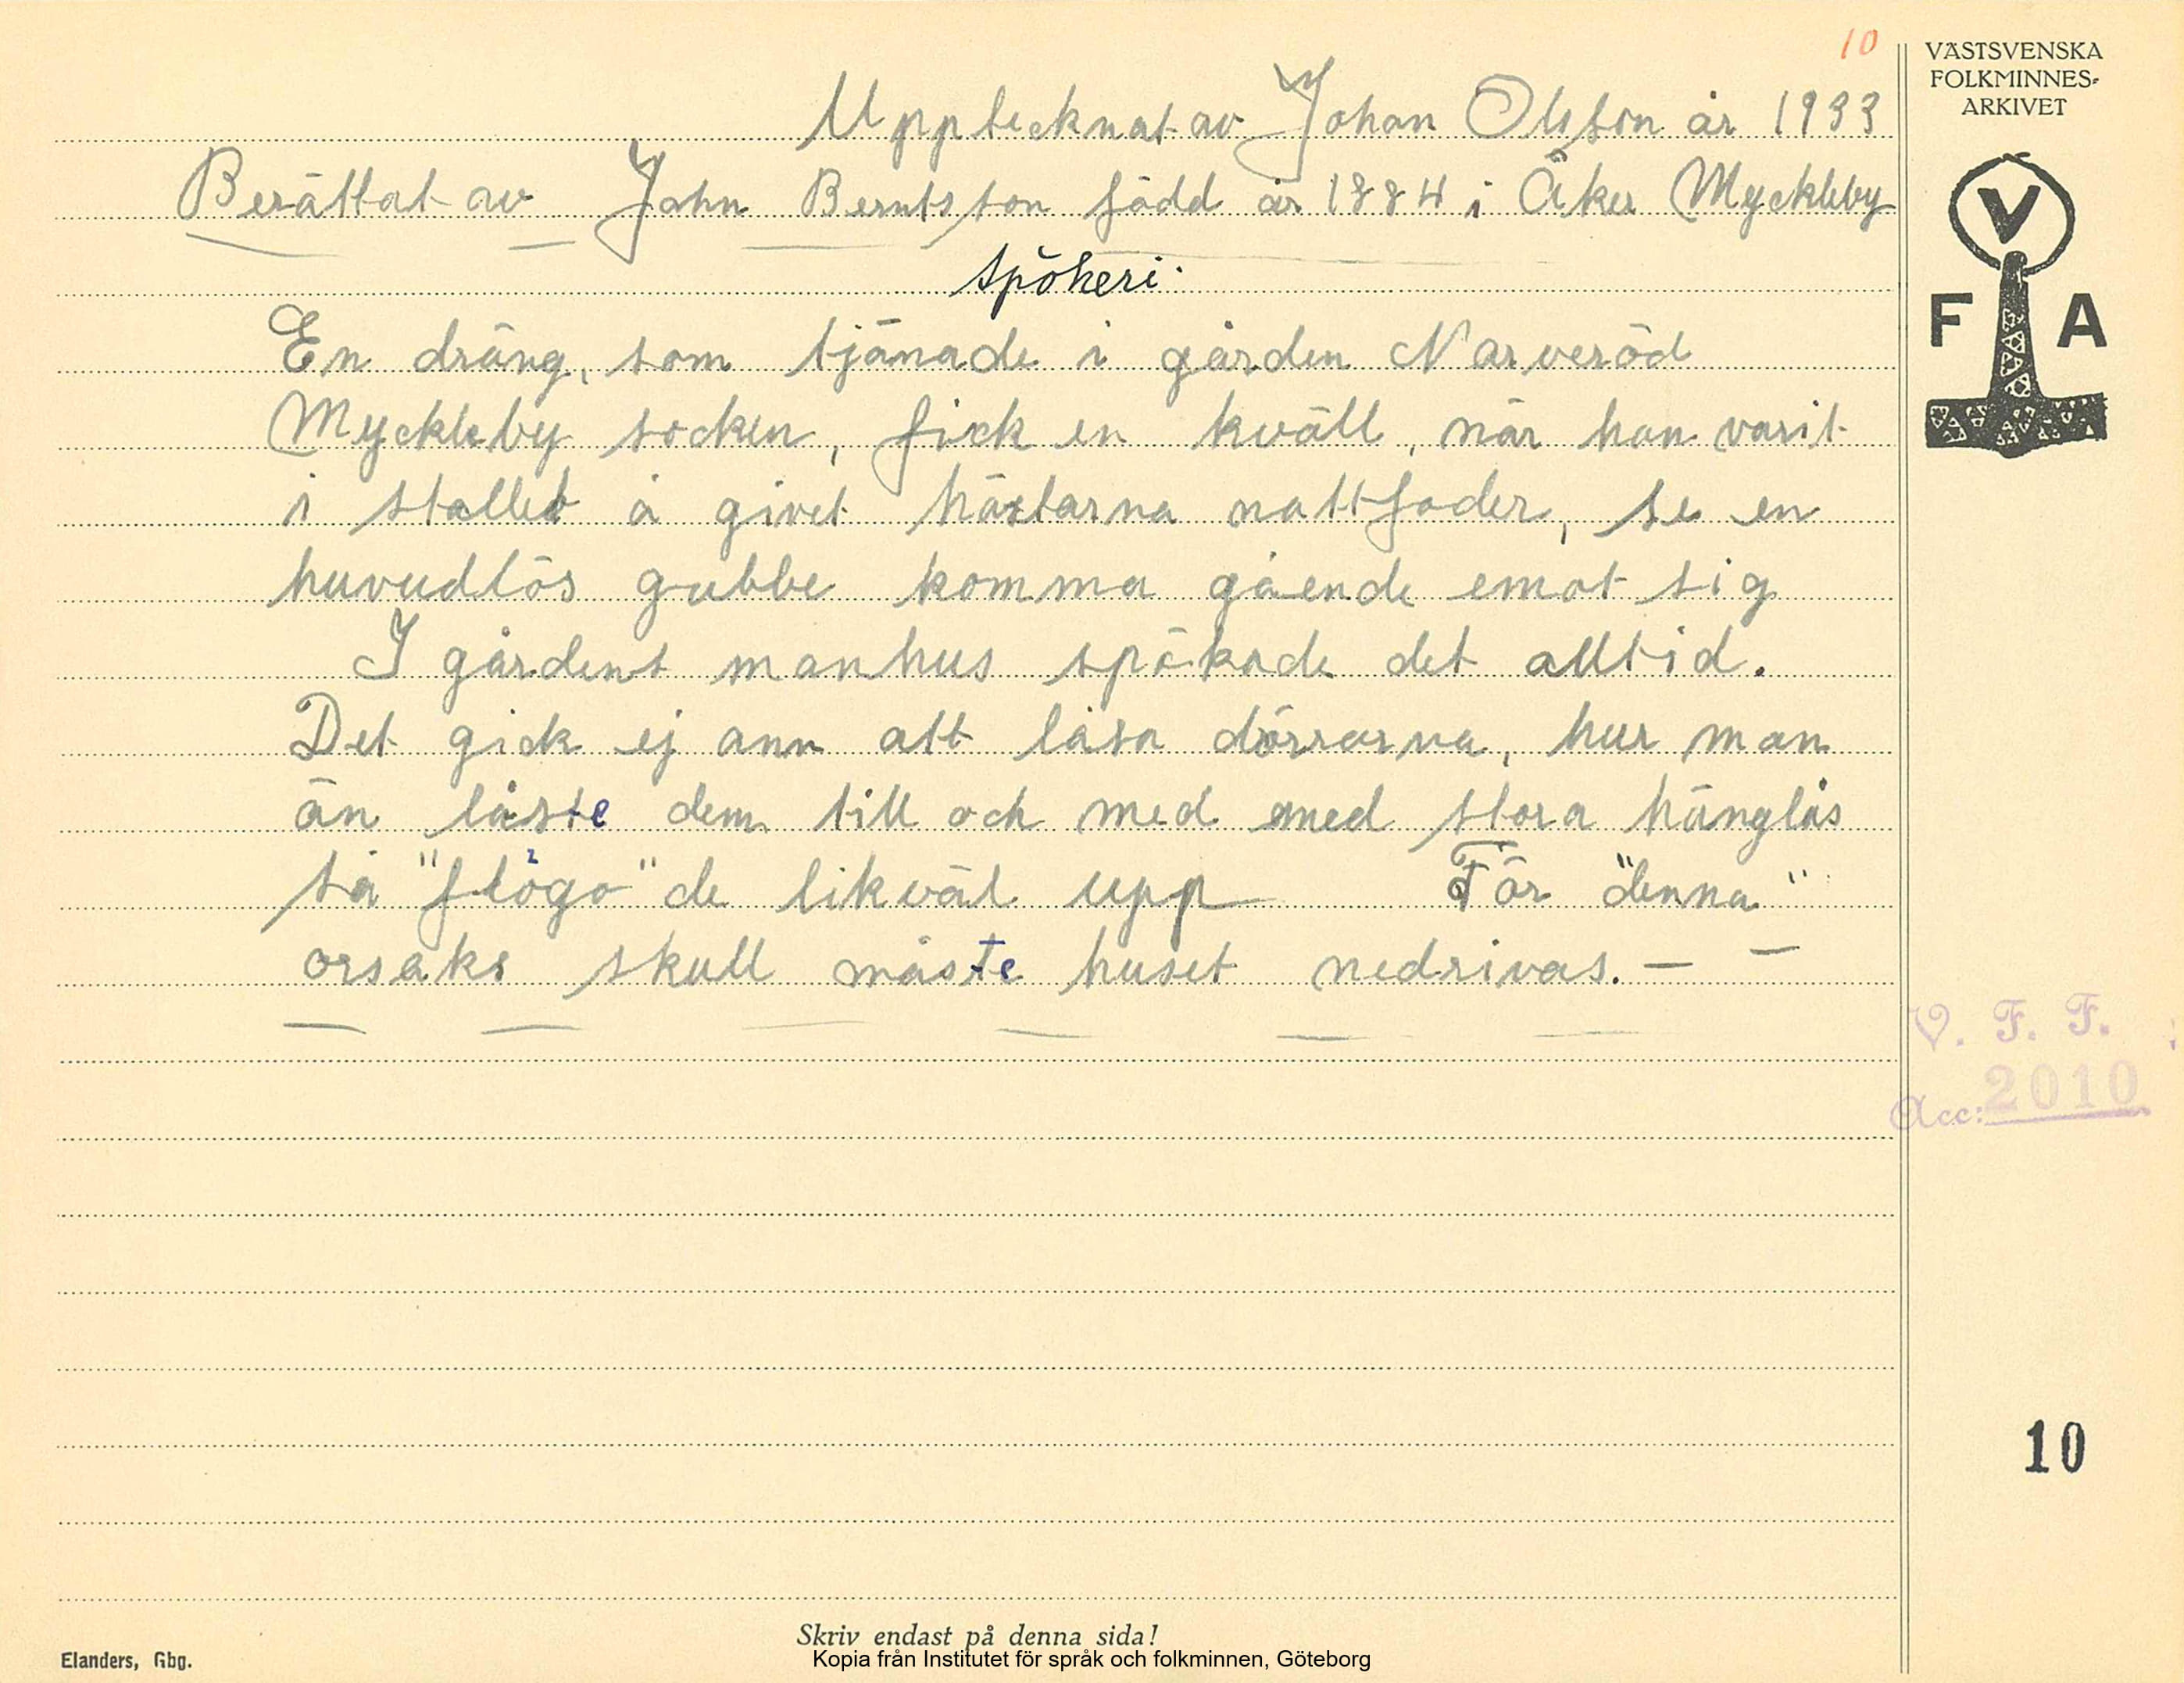 10
VÄSTSVENSKA
FOLKMINNES-
ARKIVET
Upptecknat av Johan Olsson år 1933
Berättat av John Berntsson född år 1884 i Åker Myckleby
V
F A
Spökeri.
En dräng, som tjänade i gården Narveröd
Myckleby socken, fick en kväll, när han varit
i stallet å givet hästarna nattfoder, se en
huvudlös gubbe komma gående emot sig
I gårdens manhus spökade det alltid.
Det gick ej ann att låsa dörrarna, hur man
än låste dem till och med med stora hänglås
så "flögo" de likväl upp För "denna"
orsaks skull måste huset nedrivas. —
V. F. F.
Acc: 2010
10
Skriv endast på denna sida!
Elanders, Gbg.
Kopia från Institutet för språk och folkminnen, Göteborg